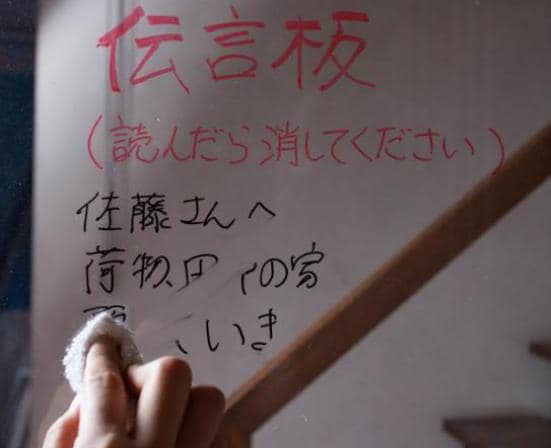 伝言板
(読んだら消してください)
佐藤さんへ
荷物、田 の家
いき